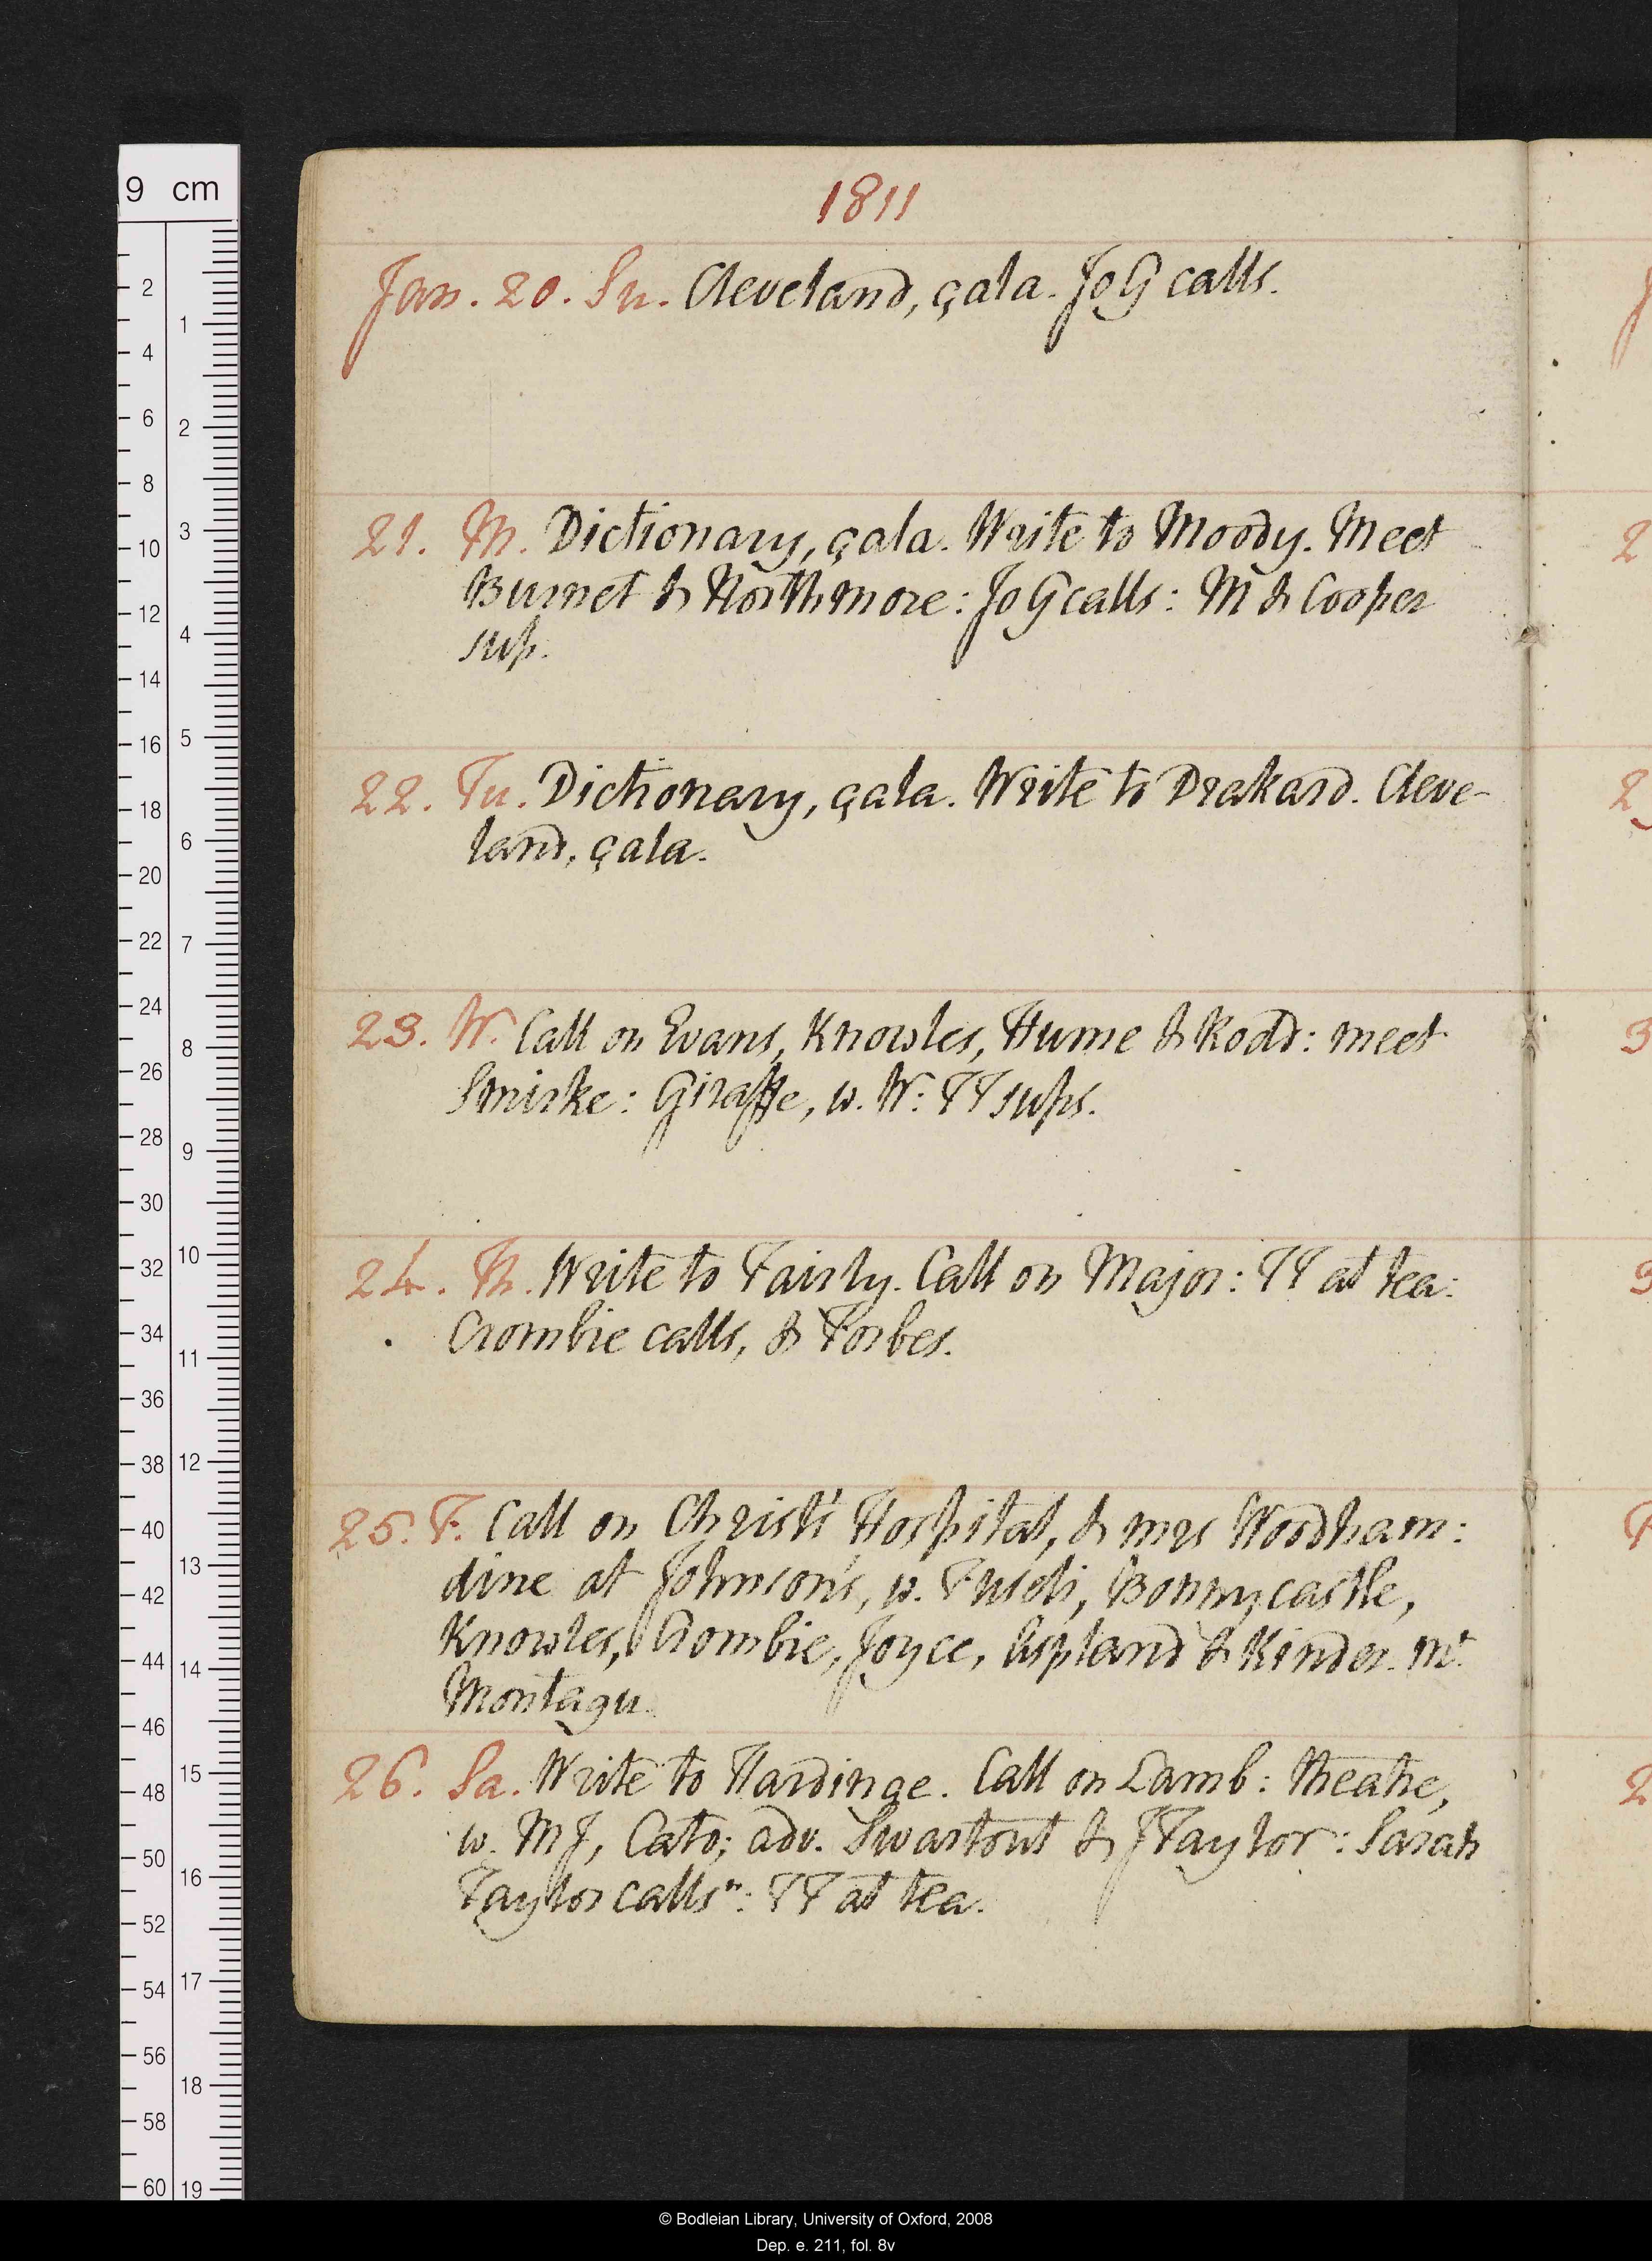 1811
Jan. 20. Su. Cleveland, çala. JoG calls.
21. M. Dictionary, çala. Write to Moody. Meet
Burnet & Northmore: JoG calls: M & Cooper
sup.
22. Tu. Dictionary, çala. Write to Drakard. Cleve-
land, çala.
23. W. Call on Evans, Knowles, Hume & Rodd: meet
Smirke: Giraffe, w. W: TT sups.
24. Th. Write to Fairly. Call on Major: TT at tea:
Crombie calls, & Forbes.
25. F. Call on Christ's Hospital, & mrs Woodham:
dine at Johnson's, w. Fuseli, Bonnycastle,
Knowles, Crombie, Joyce, Aspland & Kinder. Mt
Montagu.
26. Sa. Write to Hardinge. Call on Lamb: theatre,
w. MJ, Cato; adv. Swartout & JTaylor: Sarah
Taylor callsn: TT at tea.
9 cm
2
4
6
8
10
12
14
16
18
20
22
24
26
28
30
32
34
36
38
40
42
44
46
48
50
52
54
56
58
60
1
2
3
4
5
6
7
8
9
10
11
12
13
14
15
16
17
18
19
© Bodleian Library, University of Oxford, 2008
Dep. e. 211, fol. 8v